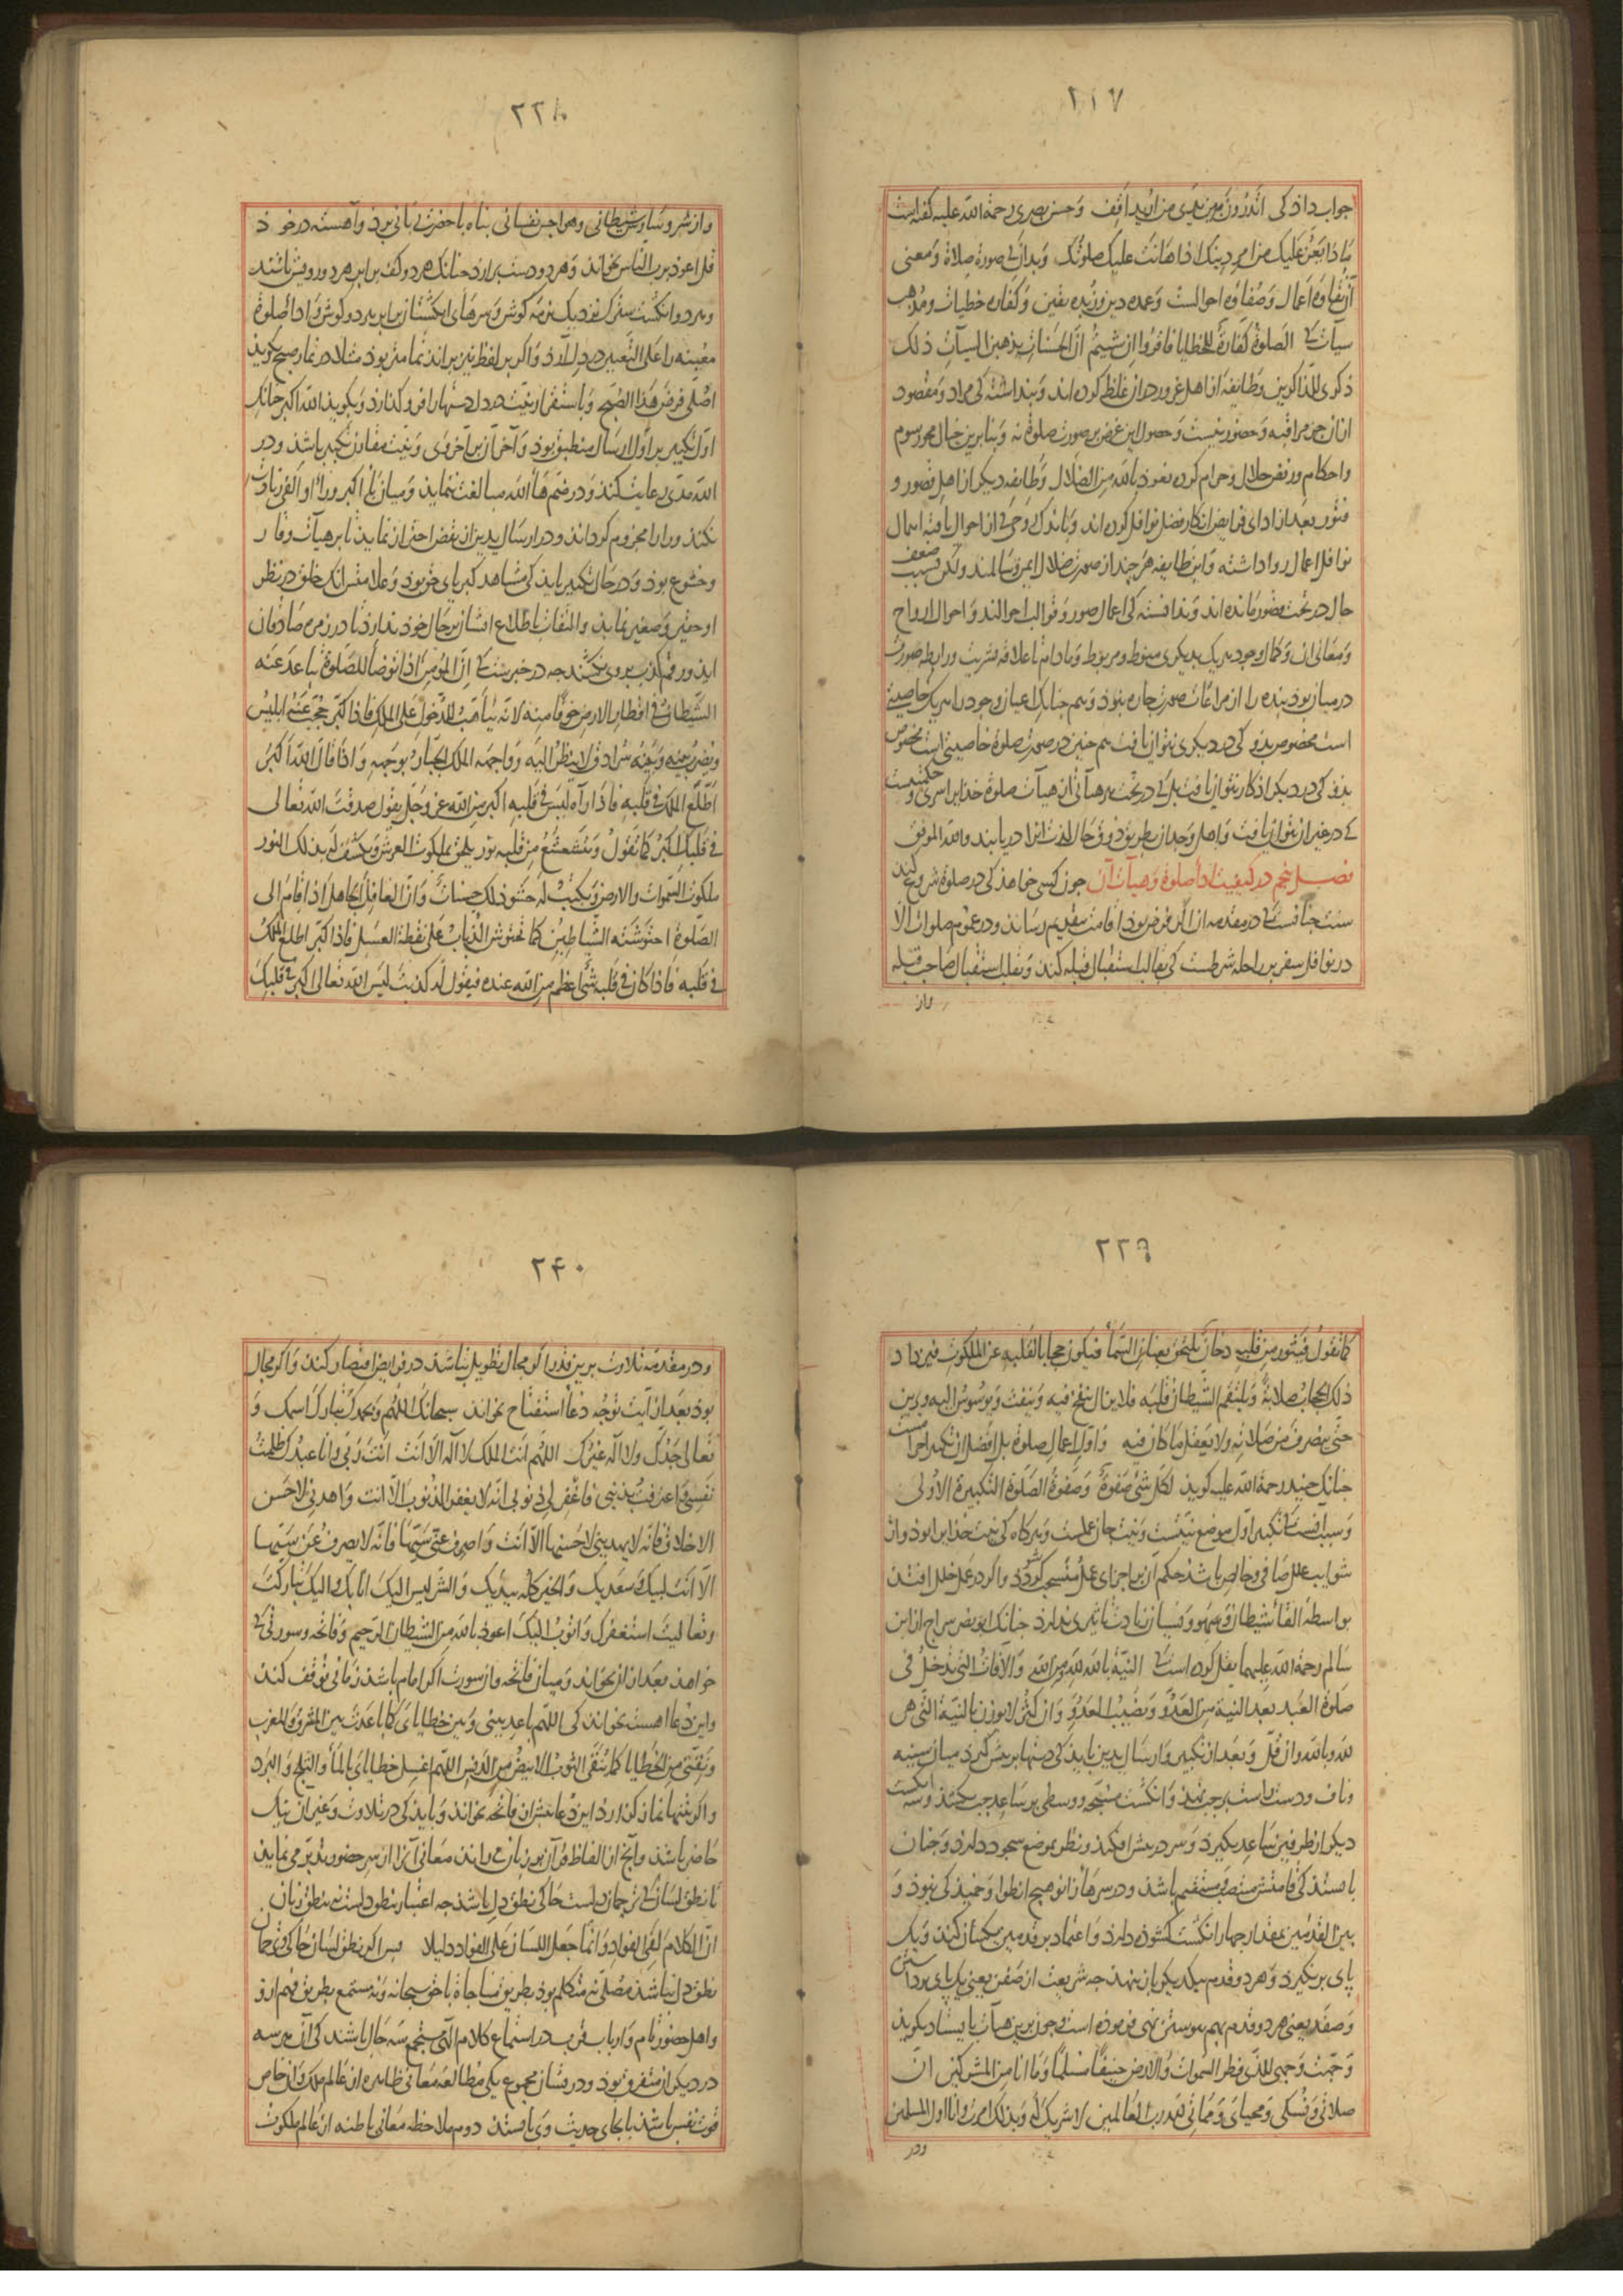 ٢٣٧
جواب داد کی اتدرون بین یدی من ارید ان اقف وحسن بصری رحمة الله علیه گفته است
ماذا یعز علیک من امر دینک اذا هانت علیک صلوتک وبدان کی صورة صلاة ومعنی
آن نقاوه اعمال وصفاوه احوالست وعمده دین وزبده یقین وکفاره خطیات ومذهب
سیآت کی الصلوة کفارة للخطایا فاقروا ان شیتم ان الحسنات یذهبن السیآت ذلک
ذکری للذاکرین وطایفه از اهل غرور در آن غلط کرده اند وپنداشته کی مراد ومقصود
از آن جز مراقبه وحضور نیست وحصول این غرض بر صورت صلوة نه وبنابرین خیال محو رسوم
واحکام ورفض حلال وحرام کرده نعوذ بالله من الضلال وطایفه دیکر از اهل قصور و
فتور بعد از ادای فرایض انکار فضل نوافل کرده اند وباندک روحی از احوال یافته اهمال
نوافل اعمال روا داشته واین طایفه هرچند از صورت ضلال ایمن وسالمند ولکن بسبب ضعف
حال در تحت قصور مانده اند وندانسته کی اعمال صور وقوالب احوالند واحوال ارواح
ومعانی آن وکمال وجود هر یک بدیکری منوط ومربوط ومادام تا علاقه بشریت ورابطه صورت
در میان بود بنده را از مراعات صورت چاره نبود وهم چنانک اعیان وجود را هر یک خاصیتی
است مخصوص بدو کی در دیکری نتوان یافت هم چنین در صورت صلوة خاصیتی است مخصوص
بدو کی در دیکر اذکار نتوان یافت بل کی در تحت هر هیآتی از هیآت صلوة خدایرا سری وحکمتیست
کی در غیر آن نتوان یافت واهل وجدان بطریق ذوق حال لذت آنرا دریابند والله الموفق
فصل پنجم در کیفیت ادأ صلوة وهیآت آن چون کسی خواهد کی در صلوة شروع کند
سنت چنانست کی در مقدمه آن اکر فرض بود اقامت بتقدیم رساند ودر عموم صلوات الا
در نوافل سفر بر راحله شرطست کی بقالب استقبال قبله کند وبقلب استقبال صاحب قبله
واز
٢٣٨
واز شر وساوس شیطانی وهواجس نفسانی پناه با حضرت ربانی برد وآهسته در خود
قل اعوذ برب الناس بخواند وهر دو دست بردارد چنانک هر دو کف برابر هر دو دوش باشد
وهر دو انکشت سترک نزدیک نرمه کوش وسرهای انکشتان برابر هر دو کوش وادأ صلوة
معینه را علی التعیین در دل آرد واکر بر لفظ نیز براند تمامتر بود مثلا در نماز صبح کوید
اصلی فرض هذا الصبح وباستقرار نیت در دل دستها را فرو کذارد وبکوید الله اکبر چنانک
اول تکبیر بر اول ارسال منطبق بود وآخر آن بر آخر وی ونیت مقارن تکبیر باشد ودر
الله مدی رعایت کند ودر ضم هاء الله مبالغت ننماید ومیان باء اکبر وراء او الفی زیادت
نکند وراء را مجزوم کرداند ودر ارسال یدین از نفض احتراز نماید تا بر هیآت وقار
وخشوع بود ودر حال تکبیر باید کی مشاهد کبریای حق بود وعلامتش آنک خلق در نظر
او حقیر وصغیر نماید والتفات باطلاع ایشان بر حال خود ندارد تا در زمره صادقان
آید ورقم کذب بر وی نکشند چه در خبرست کی ان المؤمن اذا توضأ للصلوة تباعد عنه
الشیطان فی اقطار الارض خوفا منه لانه تأهب للدخول علی الملک فاذا کبر حجب عنه ابلیس
ویضرب بینه وبینه سرادق لا ینظر الیه وواجهه الملک الجبار بوجهه واذا قال الله اکبر
اطلع الملک فی قلبه فاذا رآه لیس فی قلبه اکبر من الله عز وجل یقول صدقت الله تعالی
فی قلبک اکبر کما تقول وتشعشع من قلبه نور یلحق بملکوت العرش ویکشف له بذلک النور
ملکوت السموات والارض ویکتب له حشو ذلک حسنات وان الغافل الجاهل اذا قام الی
الصلوة احتوشته الشیاطین کما تحتوش الذباب علی نقطة العسل فاذا کبر اطلع الملک
فی قلبه فاذا کان فی قلبه شیء اعظم من الله عنده فیقول له کذبت لیس الله تعالی اکبر فی قلبک
٢٣٩
کما تقول فیثور من قلبه دخان یلتحق بعنان السمآء فیکون حجابا لقلبه عن الملکوت فیزداد
ذلک الحجاب صلابة ویلتقم الشیطان قلبه فلا یزال ینفخ فیه وینفث ویوسوس الیه ویزین
حتی ینصرف من صلاته ولا یعقل ما کان فیه واول اعمال صلوة بل افضل آن تکبیر احرامست
چنانک جنید رحمة الله علیه کوید لکل شیء صفوة وصفوة الصلوة التکبیرة الاولی
وسبب آنست کی تکبیر اول موضع نیتست ونیت جان عملست وهرکاه کی نیت خدایرا بود واز
شوایب علل صافی وخالص باشد حکم آن بر اجزای عمل منسحب کردد واکر در عمل خللی افتد
بواسطه القأ شیطان وسهو ونسیان زیادت تاثیری ندارد چنانک ابو نصر سراج از ابن
سالم رحمة الله علیهما نقل کرده است کی النیة بالله لله من الله والآفات التی تدخل فی
صلوة العبد بعد النیة من العدو ونصیب العدو وان کثر لا یوزن بالنیة التی هی
لله وبالله وان قل وبعد از تکبیر وارسال یدین باید کی دستها بر پیش کیرد میان سینه
وناف ودست راست بر چپ نهد وانکشت مسبحه ووسطی بر ساعد چپ بکشد وسه انکشت
دیکر از طرفین ساعد بکیرد وسر در پیش افکند ونظر بموضع سجود دارد وچنان
بایستد کی قامتش منتصب ومستقیم باشد ودر سر زانو هیچ انطوا وخمیدکی نبود و
بین القدمین بمقدار چهار انکشت کشوده دارد واعتماد بر قدمین یکسان کند ویک
پای بر نکیرد وهر دو قدم بیکدیکر باز ننهد چه شریعت از صفن یعنی یک پای برداشتن
وصفد یعنی هر دو قدم بهم پیوستن نهی فرموده است وچون برین هیآت بایستاد بکوید
وجهت وجهی للذی فطر السموات والارض حنیفا مسلما وما انا من المشرکین ان
صلاتی ونسکی ومحیای ومماتی لله رب العالمین لا شریک له وبذلک امرت وانا اول المسلمین
ودر
٢۴٠
ودر مقدمه تلاوت برین قدر اکر مجال تطویل نباشد در فرایض اقتصار کند واکر مجال
بود بعد از آیت توجه دعأ استفتاح بخواند سبحانک اللهم وبحمدک تبارک اسمک و
تعالی جدک ولا اله غیرک اللهم انت الملک لا اله الا انت انت ربی وانا عبدک ظلمت
نفسی واعترفت بذنبی فاغفر لی ذنوبی انه لا یغفر الذنوب الا انت واهدنی لاحسن
الاخلاق فانه لا یهدینی لاحسنها الا انت واصرف عنی سیئها فانه لا یصرف عنی سیئها
الا انت لبیک وسعدیک والخیر کله بیدیک والشر لیس الیک انا بک والیک تبارکت
وتعالیت استغفرک واتوب الیک اعوذ بالله من الشیطان الرجیم وفاتحه وسورتی کی
خواهد بعد از آن بخواند ومیان فاتحه وآن سورت اکر امام باشد زمانی توقف کند
واین دعا آهسته بخواند کی اللهم باعد بینی وبین خطایای کما باعدت بین المشرق والمغرب
ونقنی من الخطایا کما ینقی الثوب الابیض من الدنس اللهم اغسل خطایای بالمآء والثلج والبرد
واکر بتنها نماز کزارد این دعا پیش از فاتحه بخواند وباید کی در تلاوت وغیر آن نیک
حاضر باشد وآنچ از الفاظ قرآن بر زبان می راند معانی آنرا از سر حضور وتدبر می نماید
تا نطق لسان کی ترجمان دلست حاکی نطق دل باشد چه اعتبار بنطق دلست نه بنطق زبان
ان الکلام لفی الفؤاد وانما جعل اللسان علی الفؤاد دلیلا پس اکر نطق لسان حاکی وترجمان
نطق دل نباشد مصلی نه متکلم بود بطریق مناجاة با حق سبحانه ونه مستمع بطریق فهم ازو
واهل حضور تام وارباب قرب در استماع کلام الهی مستجمع سه حال باشند کی آن هر سه
در دیکران متفرق بود ودر یشان مجموع یکی مطالعه معانی ظاهره از عالم ملک وآن خاص
قوت نفس باشد تا بجای حدیث وی بایستد دوم ملاحظه معانی باطنه از عالم ملکوت